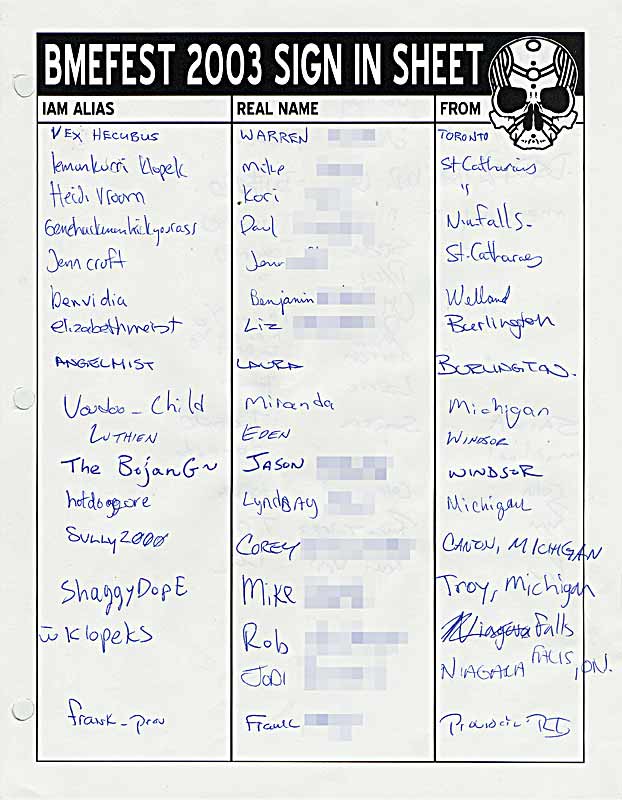 BMEFEST 2003 SIGN IN SHEET
IAM ALIAS REAL NAME FROM
VEX HECUBUS WARREN TORONTO
lemonkurri klopek Mike St Catharines
Heidi Vroom Kori "
Paul Niafalls-
Jenn croft Jenn St. Catharines
benvidia Benjamin Welland
elizabethmeist Liz Burlington
ANGELMIST LAURA BURLINGTON.
Voodoo_Child Miranda Michigan
LUTHIEN EDEN WINDSOR
The BojanG~ JASON WINDSOR
hotdoggore LyndBAy Michigan
Sully2000 COREY CANTON, MICHIGAN
ShaggyDopE Mike Troy, Michigan
Klopeks Rob Niagara Falls
JODI NIAGARA FALLS, ON.
frank_prov Frank RI